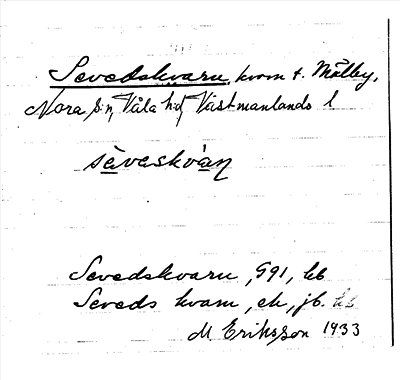 Sevedskvarn, kvarn t. Målby,
Nora sn, Våla hd, Västmanlands l
sèveskvàṇ
Sevedskvarn, G91, hb
Seveds kvarn, ek, jb. hb
M Eriksson 1933